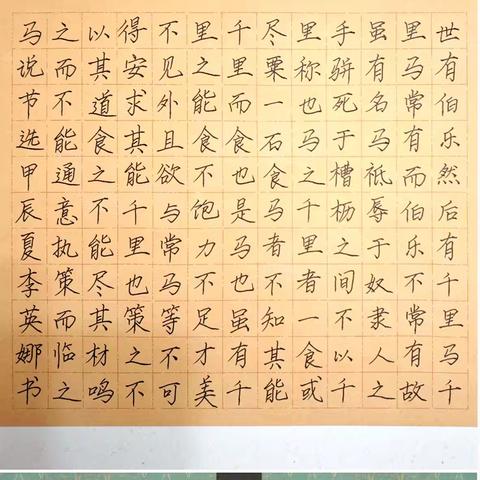 世有伯乐然后有千里马千
里马常有而伯乐不常有故
虽有名马祗辱于奴隶人之
手骈死于槽枥之间不以千
里称也马之千里者一食或
尽粟一石食马者不知其能
千里而食也是马也虽有千
里之能食不饱力不足才美
不见外且欲与常马等不可
得安求其能千里也策之不
以其道食之不能尽其材鸣
之而不能通意执策而临之
马说节选甲辰夏李英娜书